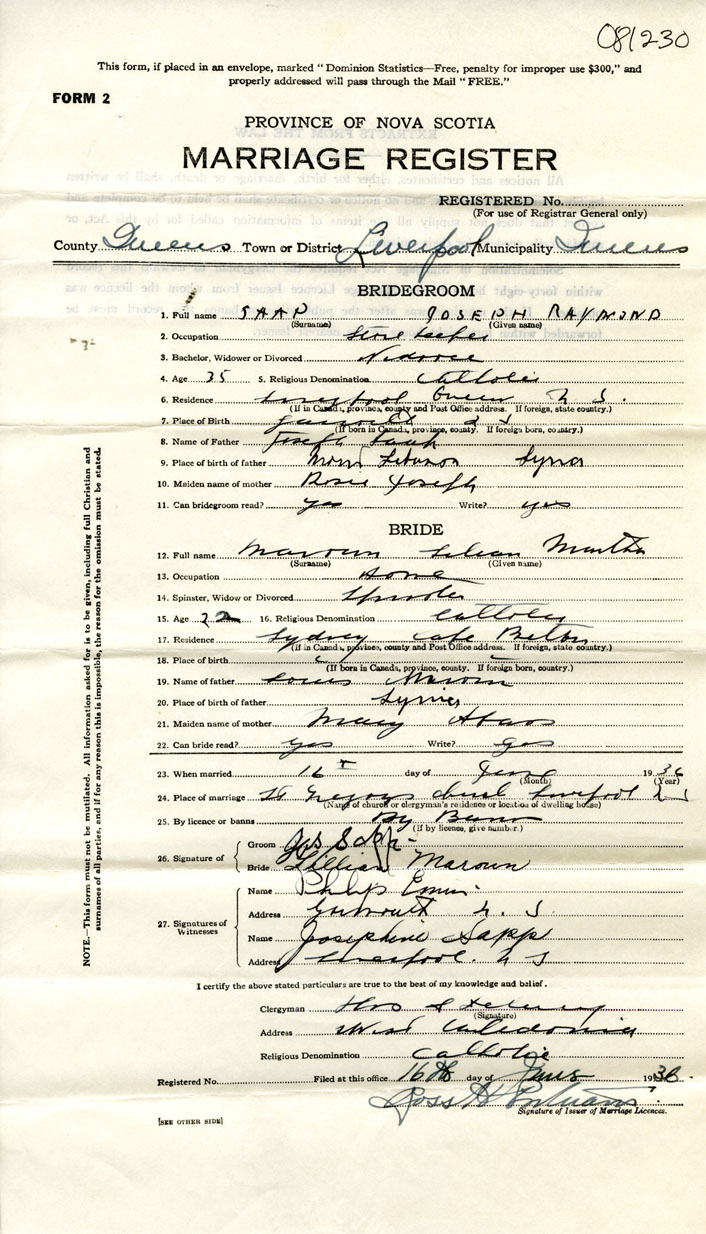 081230
This form, if placed in an envelope, marked "Dominion Statistics—Free, penalty for improper use $300," and
properly addressed will pass through the Mail "FREE."
FORM 2
PROVINCE OF NOVA SCOTIA
MARRIAGE REGISTER
REGISTERED No.
(For use of Registrar General only)
County Queens Town or District Liverpool Municipality Queens
BRIDEGROOM
1. Full name SAAP JOSEPH RAYMOND
(Surname) (Given name)
2. Occupation Store keeper
3. Bachelor, Widower or Divorced
4. Age 35 5. Religious Denomination Catholic
6. Residence Liverpool Queens N S.
(If in Canada, province, county and Post Office address. If foreign, state country.)
7. Place of Birth
(If born in Canada, province, county. If foreign born, country.)
8. Name of Father Joseph
9. Place of birth of father Mount Lebanon Syria
10. Maiden name of mother Rosie Joseph
11. Can bridegroom read? yes Write? yes
BRIDE
12. Full name Maroun Lilian Martha
(Surname) (Given name)
13. Occupation Home
14. Spinster, Widow or Divorced Spinster
15. Age 22 16. Religious Denomination Catholic
17. Residence Sydney Cape Breton
(If in Canada, province, county and Post Office address. If foreign, state country.)
18. Place of birth
(If born in Canada, province, county. If foreign born, country.)
19. Name of father Louis Maroun
20. Place of birth of father Syria
21. Maiden name of mother Mary
22. Can bride read? yes Write? yes
23. When married 16 day of June 1936
(Month) (Year)
24. Place of marriage St Gregorys church Liverpool N S
(Name of church or clergyman's residence or location of dwelling house)
25. By licence or banns By Banns
(If by licence, give number.)
26. Signature of Groom Jos Sapp
Bride Lillian Maroun
27. Signatures of Witnesses
Name Philip
Address Yarmouth N. S
Name Josephine Sapp
Address Liverpool. N S
I certify the above stated particulars are true to the best of my knowledge and belief.
Clergyman
(Signature)
Address West Caledonia
Religious Denomination Catholic
Registered No. Filed at this office 16th day of June 1936.
Ross H
Signature of Issuer of Marriage Licences.
[SEE OTHER SIDE]
NOTE.—This form must not be mutilated. All information asked for is to be given, including full Christian and
surnames of all parties, and if for any reason this is impossible, the reason for the omission must be stated.